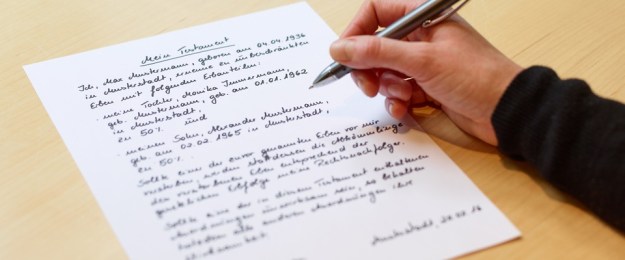 Mein Testament
Ich, Max Mustermann, geboren am 04.04.1936
in Musterstadt, ernenne zu unbeschränkten
Erben mit folgenden Erbanteilen:
- meine Tochter, Monika Immermann,
geb. Mustermann, geb. am 01.01.1962
in Musterstadt,
zu 50% und
- meinen Sohn, Alexander Mustermann,
geb. am 02.02.1965 in Musterstadt,
zu 50%.
Sollte eine der zuvor genannten Erben vor mir
versterben, werden stattdessen die Abkömmlinge
des verstorbenen Erben entsprechend der
gesetzlichen Erbfolge meine Rechtsnachfolger.
Sollte eine der in diesem Testament enthaltenen
Anordnungen unwirksam sein, so behalten
trotzdem alle anderen Anordnungen ihre
Wirksamkeit.
Musterstadt,